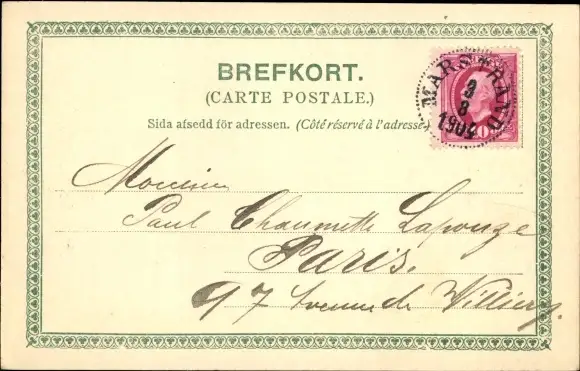 BREFKORT.
(CARTE POSTALE.)
Sida afsedd för adressen. (Côté réservé à l'adresse)
MARSTRAND
9
8
1905
10
Monsieur
Paul Chaumette Lapouze
Paris.
97 Avenue de Villiers.